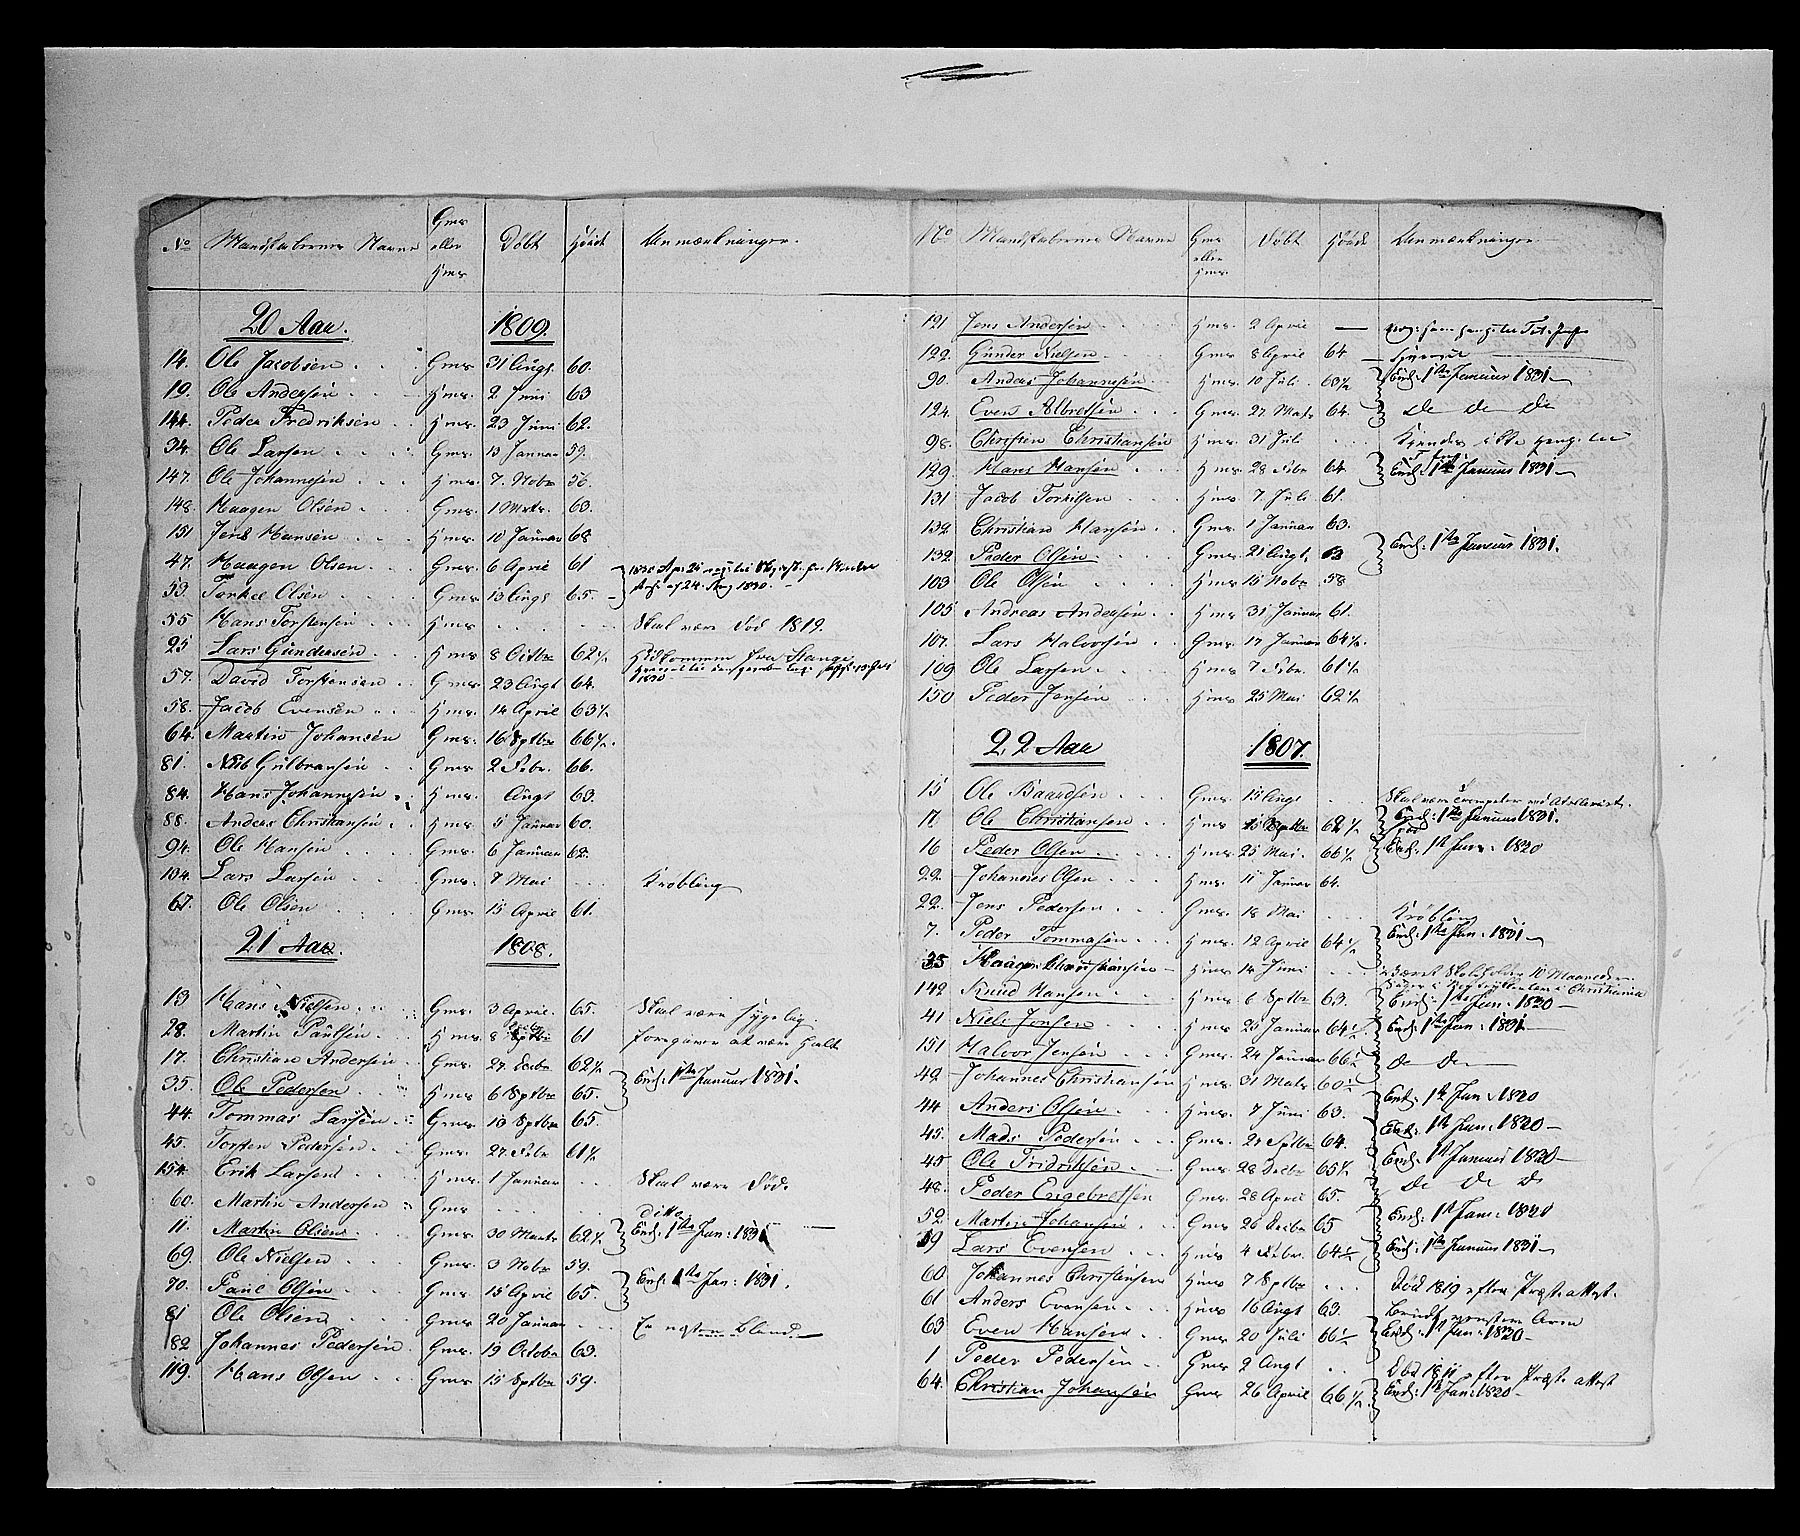 No Mandskabernes Navne Gms eller Hms Døbt Høide Anmærkninger.
20 Aar. 1809.
14. Ole Jacobsen Gms 31 Augt 60.
19. Ole Andersen Hms. 2 Juni 63
144. Peder Fredriksen Hms. 23 Juni 62.
34. Ole Larsen Gms. 13 Januar 59.
147. Ole Johannesen Hms. 7. Nobr 56.
148. Haagen Olsen Gms. 1 Marts. 63.
151 Jens Hansen Hms. 10 Januar 68
47. Haagen Olsen Gms. 6 April 61
53. Torkel Olsen Gms. 13 Augt 65.
55 Hans Torstensen Hms Skal være Død 1812.
25 Lars Gundersen Hms 8 Octbr 62½ Hidkommen fra Stange
57. David Torstensen Gms. 23 Augt 64. 1830
58. Jacob Evensen Hms. 14 April 63½
64. Martin Johansen Gms. 16 Sptbr 66½.
81. Niels Gulbransen Gms 2 Febr. 66.
84. Hans Johannesen Hms. Augt 63.
88. Anders Christiansen Gms. 5 Januar 60.
94. Ole Hansen Gms. 6 Januar 62.
134. Lars Larsen Gms. 7 Mai Krøbling
67. Ole Olsen Gms. 15 April 61.
21 Aar. 1808.
13 Hans Nielsen Gms. 3 April. 65. Skal være sygelig.
28. Martin Paulsen Hms. 8 Sptbr 61 foregiver at være halt
17. Christian Andersen Gms. 27 Decbr 62½
35. Ole Pedersen Hms 6 Sptbr 65. Enr. 1ste Januar 1831.
44. Tommas Larsen Gms 13 Sptbr 65.
45. Torsten Pedersen Gms. 27 Febr 61½
154. Erik Larsen Hms. 1 Januar Skal være Død.
60. Martin Andersen Gms ditto
11. Martin Olsen Gms. 30 Marts 62½ Enr. 1ste Jan: 1831
69. Ole Nielsen Gms. 3 Nobr 59.
70. Paul Olsen Gms 15 April 65. Enr. 1ste Jan: 1831.
81 Ole Olsen Gms 20 Januar En næsten blind.
182 Johannes Pedersen Gms. 19 Octobr 63.
119. Hans Olsen Gms 15 Sptbr 59.
No Mandskabernes Navne Gms eller Hms. Døbt Høide Anmærkninger
121 Jens Andersen Hms. 2 April
122. Gunder Nielsen Gms. 8 April 64
90. Anders Johannesen Hms. 10 Juli 63½ Enr. 1ste Januar 1831
124. Even Albretsen Gms. 27 Mats 64. do do do
98. Christen Christiansen Hms. 31 Juli Kjendes ikke
129. Hans Hansen Hms. 28 Febr 64. Enr. 1ste Januar 1831
131 Jacob Torkilsen Hms 7 Juli 61.
132. Christian Hansen Gms. 1 Januar 63.
132. Peder Olsen Gms. 21 Augt. 63 Enr. 1ste Januar 1831.
103 Ole Olsen Hms 15 Nobr 58
105 Andreas Andersen Hms 31 Januar 61.
107. Lars Halvorsen Gms. 17 Januar 64½.
109 Ole Larsen Hms 7 Febr. 61½
150 Peder Jensen Hms 25 Mai 62½
22 Aar 1807.
15 Ole Baardsen Gms. 15 Augt Skal være Trompeter ved Artilleriet.
17. Ole Christiansen Hms 15 Sptbr 62½ Enr. 1ste Januar 1831.
16 Peder Olsen Hms. 25 Mai. 66½ Enr. 1st Janr. 1830
22. Johannes Olsen Hms. 11 Januar 64.
22. Jens Pedersen Gms. 18 Mai Krøbling
7. Peder Tommasen Hms. 12 April 64½ Enr. 1ste Jan. 1831
35 Haagen Christiansen Hms 14 Juni
142 Knud Hansen Hms 6 Sptbr 63. Enr. 1ste Jan. 1830
41 Niels Jonsen Hms. 25 Januar 64½ Enr. 1ste Jan. 1831
151 Halvor Jensen Hms. 24 Januar 66½ do do
42 Johannes Christiansen Hms. 31 Mats 60½
44 Anders Olsen Hms. 7 Juni 63. Enr. 1st Jan. 1830
45. Mads Pedersen Gms. 27 Sptbr 64. Enr. 1st Jan. 1830
45 Ole Fridriksen Gms. 28 Decbr 65½ Enr. 1st Januar 1830
48. Peder Engebretsen Gms. 28 April 65. do do do
52 Martin Johansen Gms 26 Decbr 65 Enr. 1st Jan. 1830
59 Lars Evensen Hms 4 Febr. 64½ Enr. 1ste Januar 1831
60 Johannes Christensen Hms 7 Sptbr Død 1819 efter Præsteattest.
61 Anders Evensen Hms 16 Augt 63. venstre Arm
63 Even Hansen Gms 20 Juli 66½ Enr. 1st Jan. 1830
1 Peder Pedersen Gms 2 Augt Død 1811 efter Præsteattest
64. Christian Johansen Gms 26 April 66½. Enr. 1st Jan: 1830